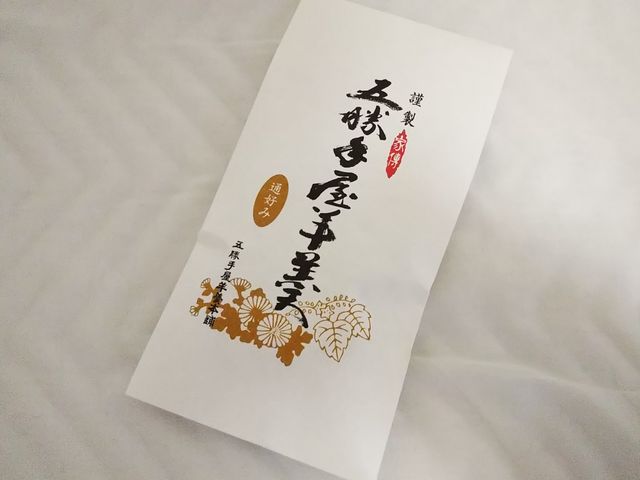 謹製
家傳
五勝手屋羊羹
通好み
五勝手屋羊羹本舗